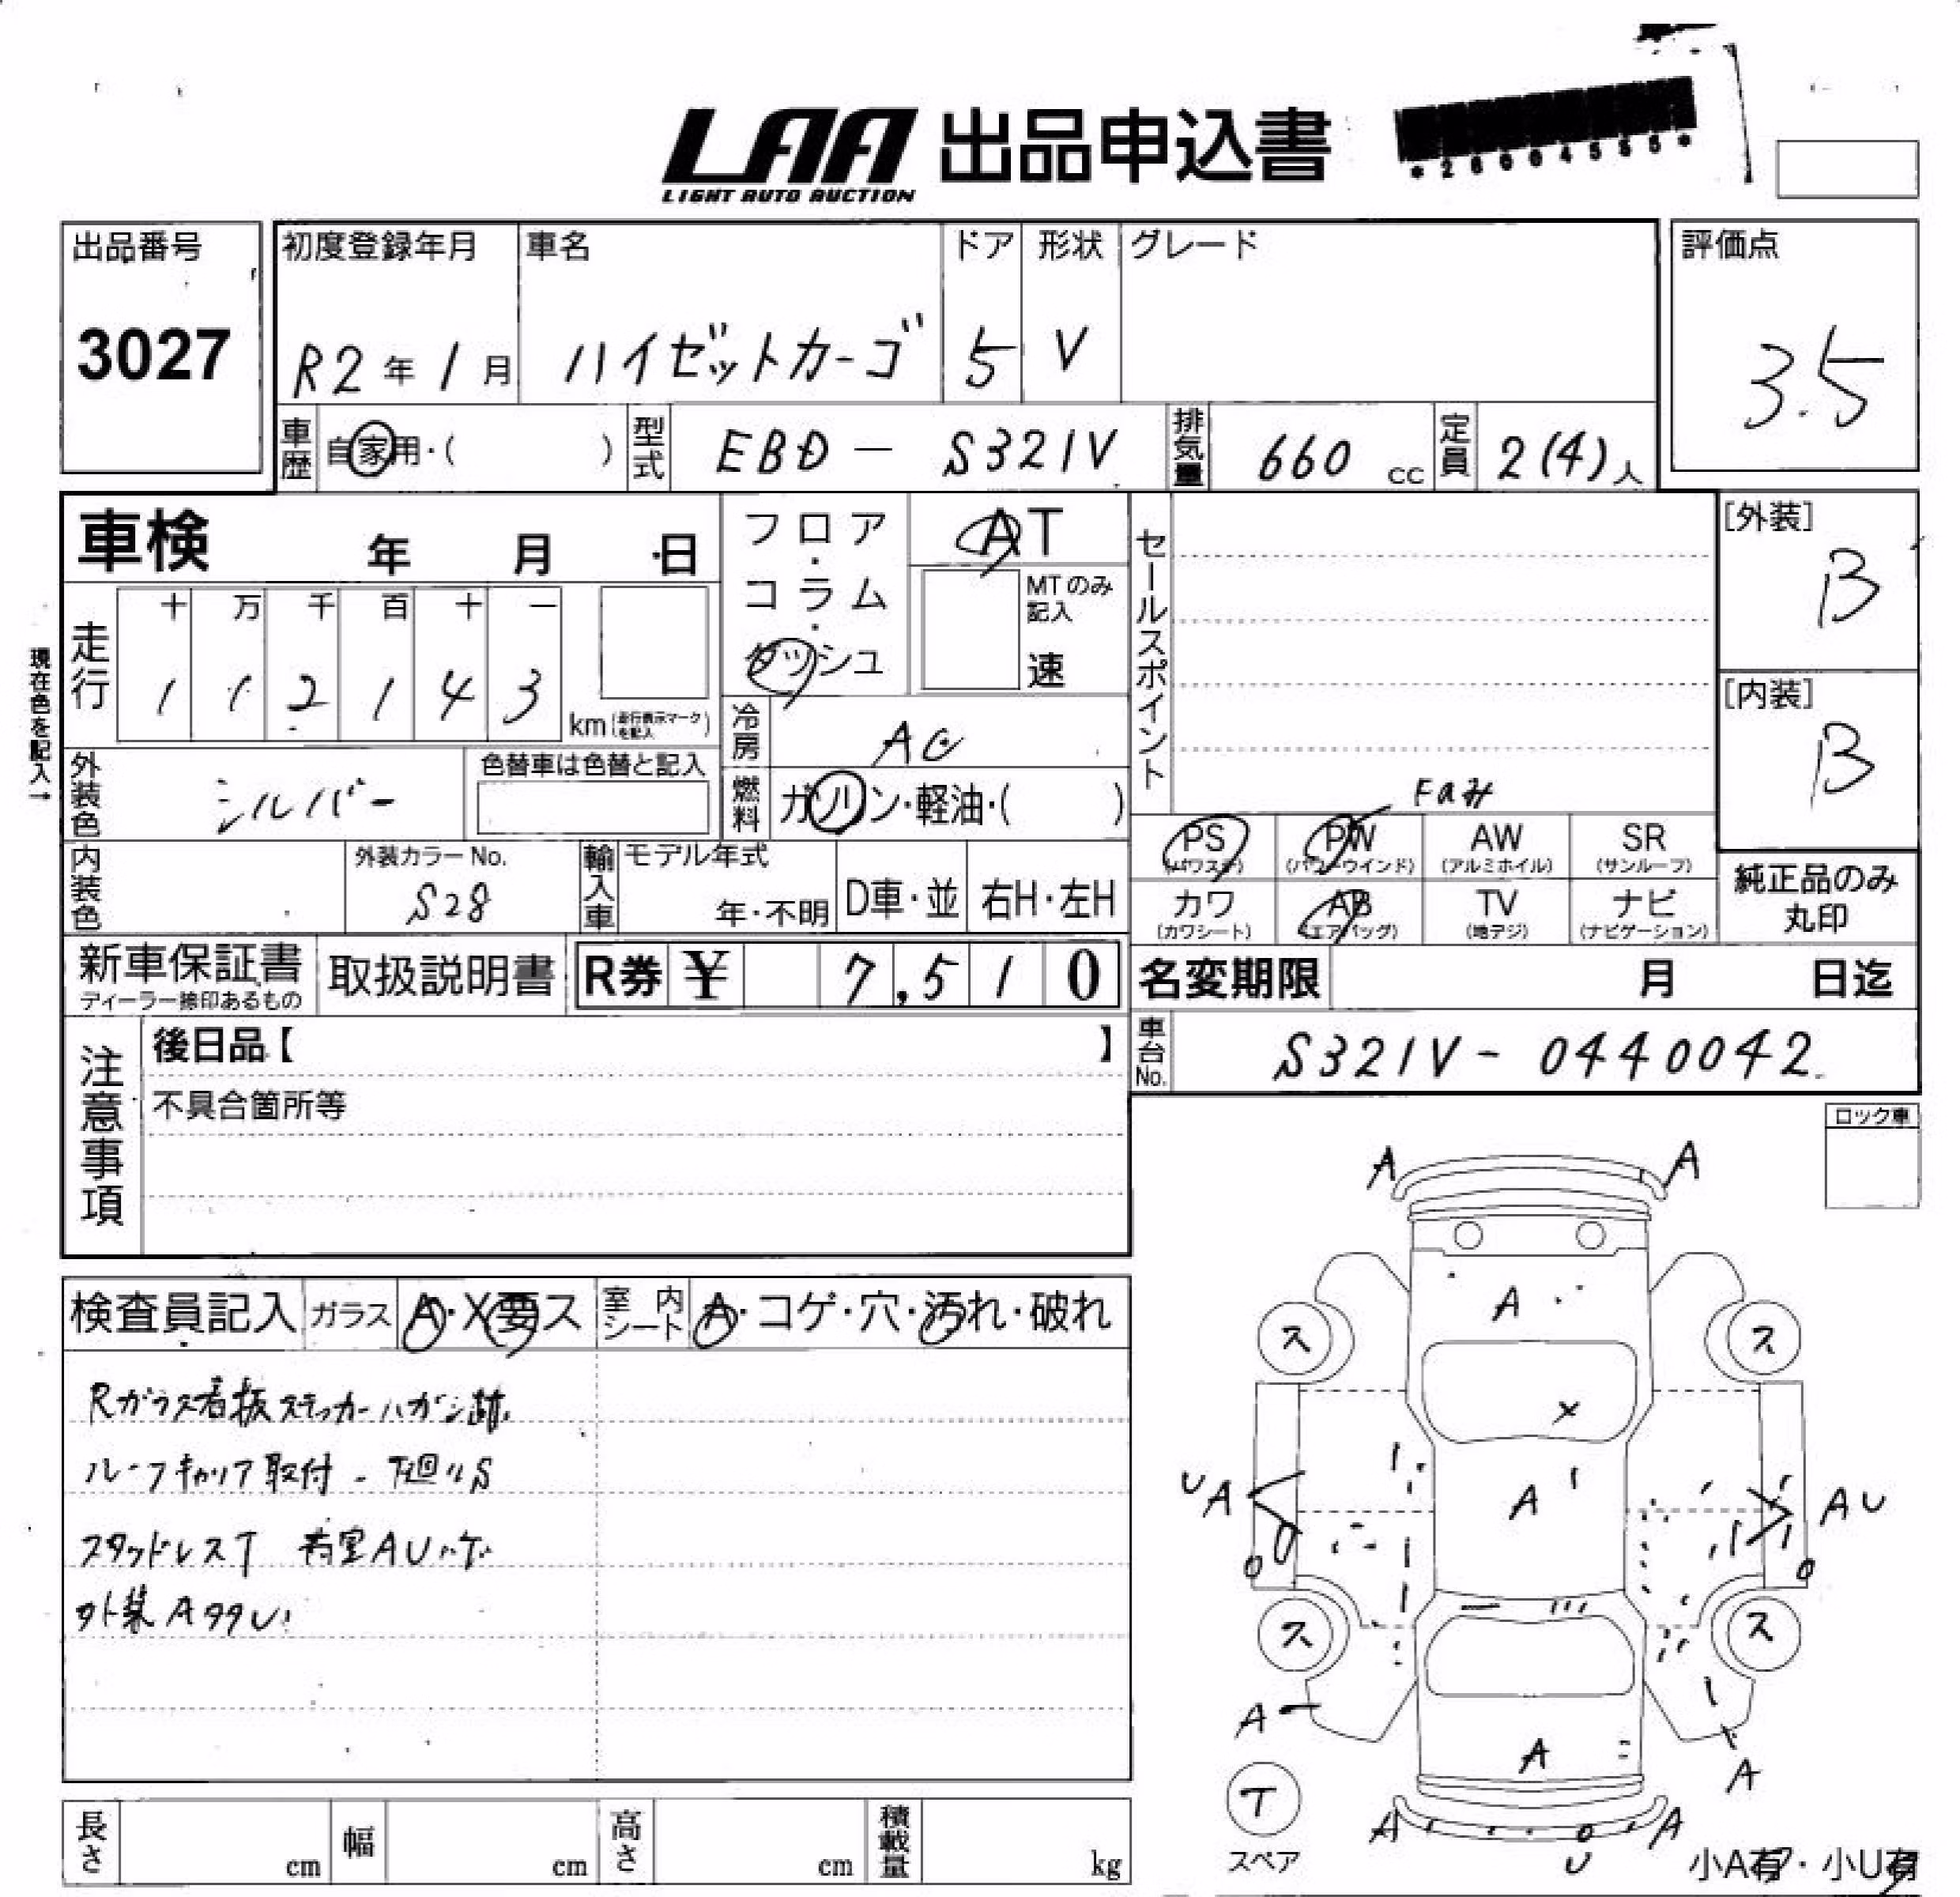 LAA 出品申込書
LIGHT AUTO AUCTION
*2600455
出品番号 初度登録年月 車名 ドア 形状 グレード 評価点
3027 R2年1月 ハイゼットカーゴ 5 V 3.5
車歴 自家用・( ) 型式 EBD-S321V 排気量 660 cc 定員 2(4)人
車検 年 月 日
フロア・コラム・ダッシュ
AT
MTのみ記入
速
セールスポイント
[外装]
B
[内装]
B
現在色を記入→
走行 十 万 千 百 十 一
1 1 2 1 4 3 km (走行表示マークを記入)
冷房 AC
外装色 シルバー 色替車は色替と記入
燃料 ガソリン・軽油・( )
内装色 外装カラーNo. S28
輸入車 モデル年式 年・不明 D車・並 右H・左H
PS (パワステ) PW (パワーウインド) AW (アルミホイル) SR (サンルーフ)
カワ (カワシート) AB (エアバッグ) TV (地デジ) ナビ (ナビゲーション)
純正品のみ丸印
新車保証書 ディーラー捺印あるもの 取扱説明書 R券 ¥ 7,510
名変期限 月 日迄
車台No. S321V-0440042
注意事項
後日品【 】
不具合箇所等
ロック車
検査員記入 ガラス A・X要ス 室内シート A・コゲ・穴・汚れ・破れ
Rガラス看板ステッカーハガシ跡
ルーフキャリア取付 下廻りS
スタッドレスT 荷室AU
外装A
A A
A
ス ス
X
UA A AU
ス ス
A A
A
T
スペア
A A
U
小A有・小U有
長さ cm 幅 cm 高さ cm 積載量 kg